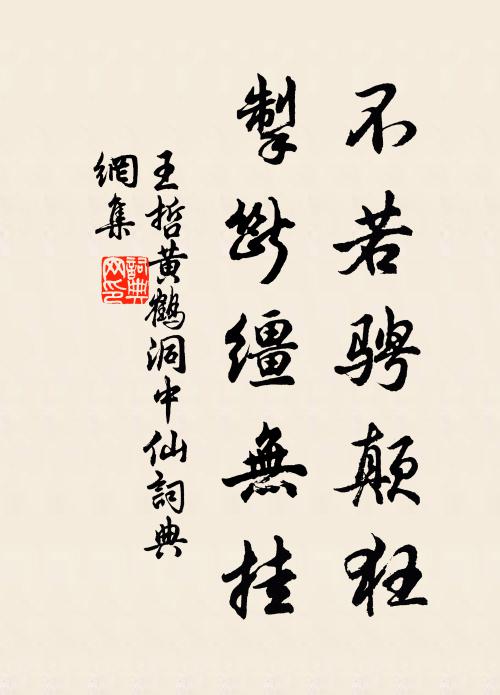 不若骋颠狂
掣断缰無挂
王哲黄鶴洞中仙詞典
網集
詞典
网印